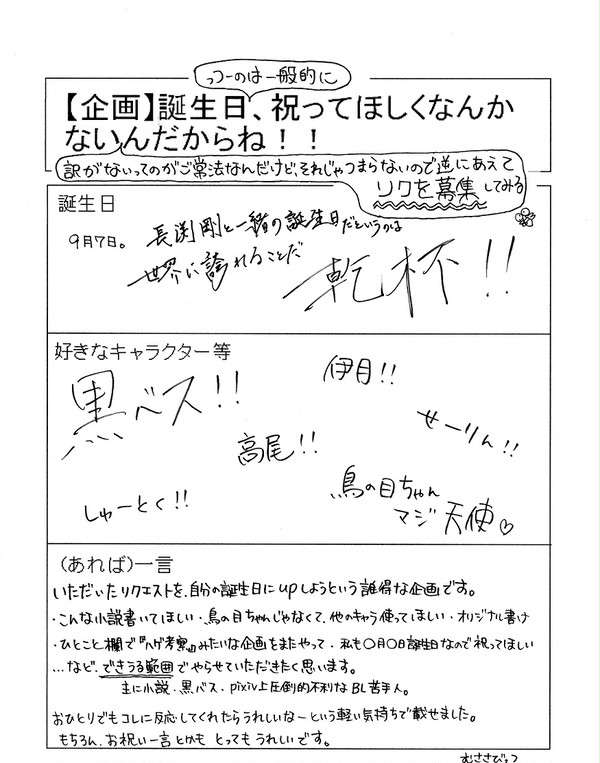 っつーのは一般的に
【企画】誕生日、祝ってほしくなんか
ないんだからね！！
訳がないってのがご常法なんだけど、それじゃつまらないので逆にあえて
リクを募集してみる
誕生日
9月7日。 長渕剛と一緒の誕生日だというのは
世界に誇れることだ
乾杯!!
好きなキャラクター等
黒バス!!
伊月!!
せーりん!!
高尾!!
しゅーとく!!
鳥の目ちゃん
マジ天使♡
(あれば)一言
いただいたリクエストを、自分の誕生日にupしようという誰得な企画です。
・こんな小説書いてほしい ・鳥の目ちゃんじゃなくて、他のキャラ使ってほしい ・オリジナル書け
・ひとこと欄で『ハゲ考察』みたいな企画をまたやって ・私も〇月〇日誕生日なので祝ってほしい
…など、できうる範囲でやらせていただきたく思います。
主に小説・黒バス・pixiv上圧倒的不利なBL苦手人。
おひとりでもコレに反応してくれたらうれしいなーという軽い気持ちで載せました。
もちろん、お祝い一言とかも とってもうれしいです。
むささびっつ